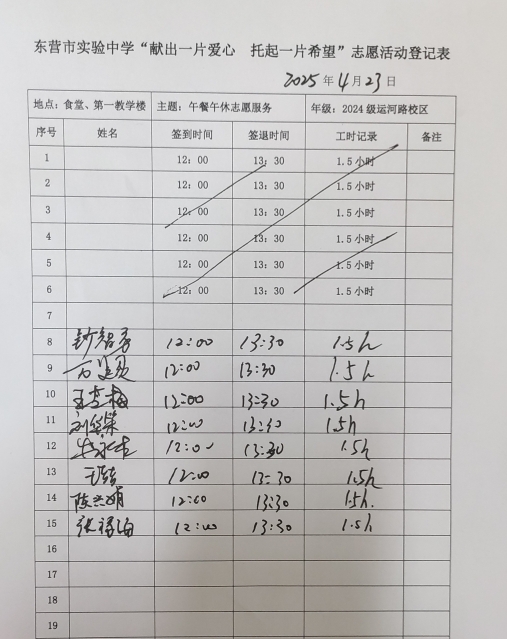 东营市实验中学“献出一片爱心 托起一片希望”志愿活动登记表
2025年4月23日
地点：食堂、第一教学楼 主题：午餐午休志愿服务 年级：2024级运河路校区
序号 姓名 签到时间 签退时间 工时记录 备注
1 12：00 13：30 1.5小时
2 12：00 13：30 1.5小时
3 12：00 13：30 1.5小时
4 12：00 13：30 1.5小时
5 12：00 13：30 1.5小时
6 12：00 13：30 1.5小时
7
8 12:00 13:30 1.5h
9 12:00 13:30 1.5h
10 王秀梅 12:00 13:30 1.5h
11 12:00 13:30 1.5h
12 12:00 13:30 1.5h
13 12:00 13:30 1.5h
14 12:00 13:30 1.5h.
15 张福海 12:00 13:30 1.5h
16
17
18
19